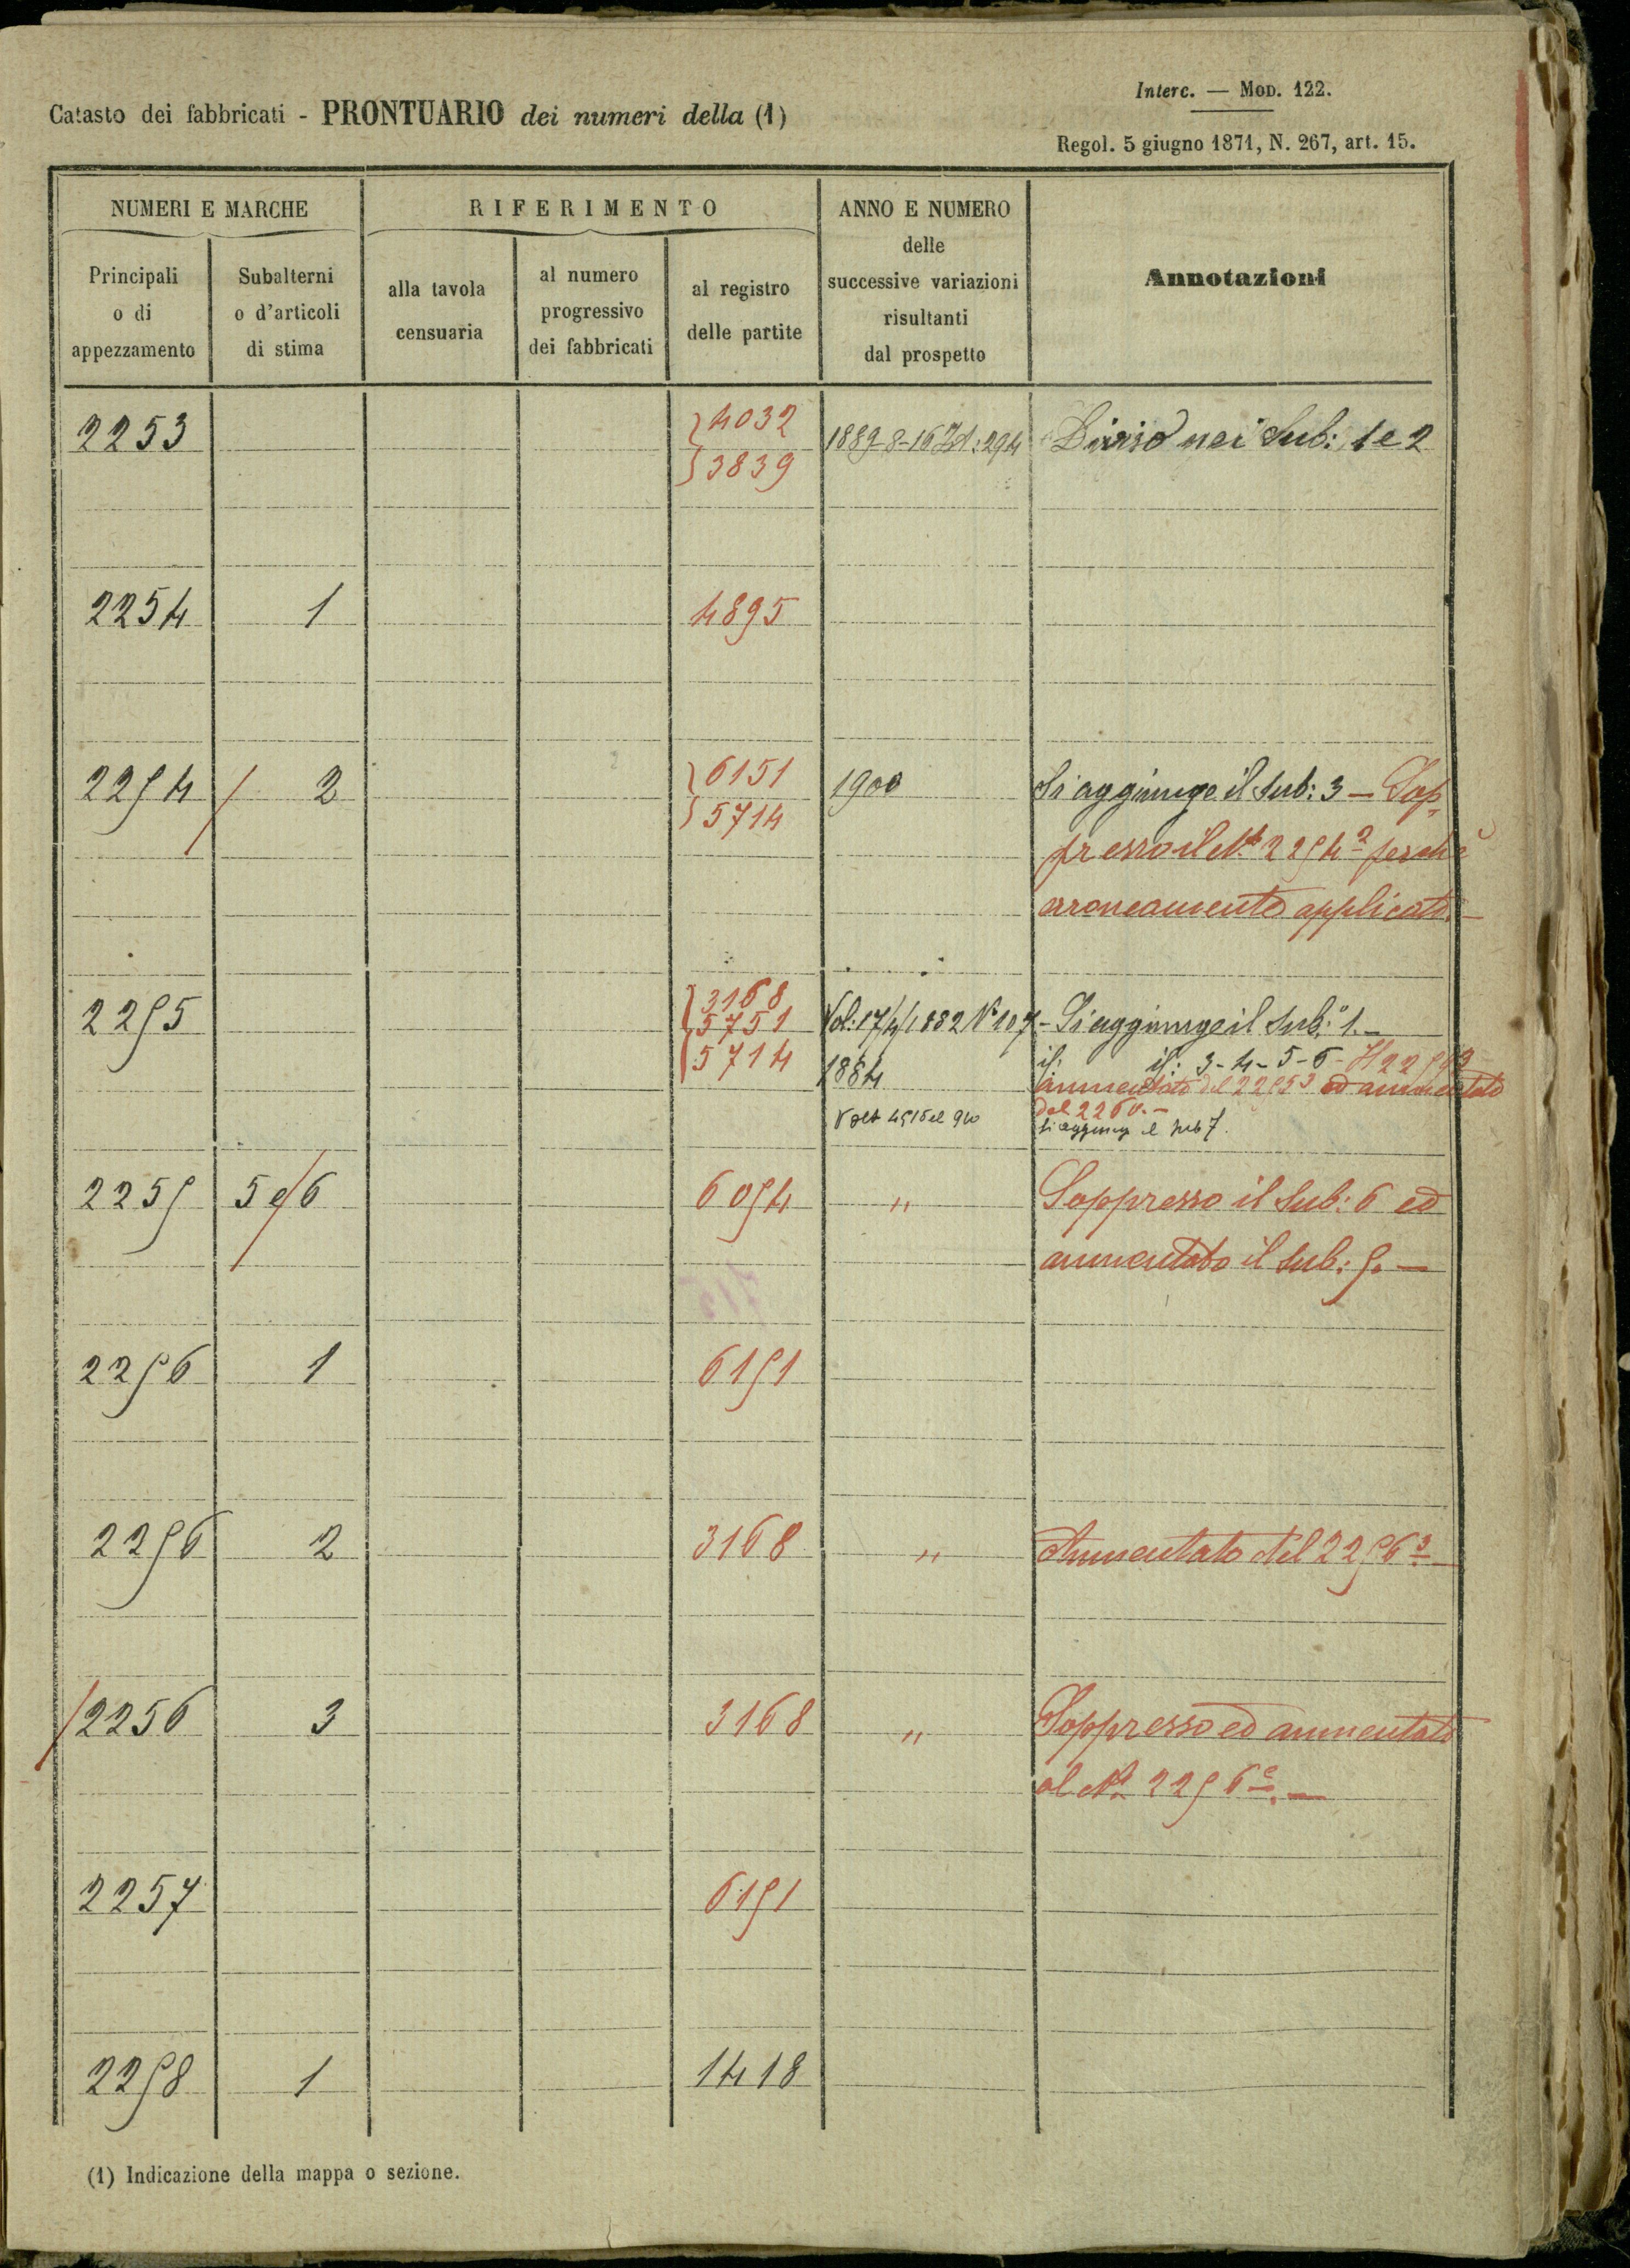 Catasto dei fabbricati - PRONTUARIO dei numeri della (1)
Interc. — Mod. 122.
Regol. 5 giugno 1871, N. 267, art. 15.
NUMERI E MARCHE
RIFERIMENTO
ANNO E NUMERO
delle
successive variazioni
risultanti
dal prospetto
Annotazioni
Principali
o di
appezzamento
Subalterni
o d'articoli
di stima
alla tavola
censuaria
al numero
progressivo
dei fabbricati
al registro
delle partite
2253 4032 Diviso nei Sub: 1 e 2
3839
2254 1 4895
2254 2 6151 1900 Si aggiunge il sub: 3 — Sop
5714 presso il N° 2254² perchè
erroneamente applicato. —
2255 3168
5751 Vol: 17/4/1882 N° 107 - Si aggiunge il Sub: 1. —
5714 1884 3-4-5-6-
aumentato del ed aumentato
del 2260. —
si aggiunge il sub 7.
2255 5 e 6 6054 " Soppresso il Sub: 6 ed
aumentato il Sub: 5. —
2256 1 6151
2256 2 3168 " Aumentato del 2256³ —
2256 3 3168 " Soppresso ed aumentato
al N° 2256². —
2257 6151
2258 1 1418
(1) Indicazione della mappa o sezione.